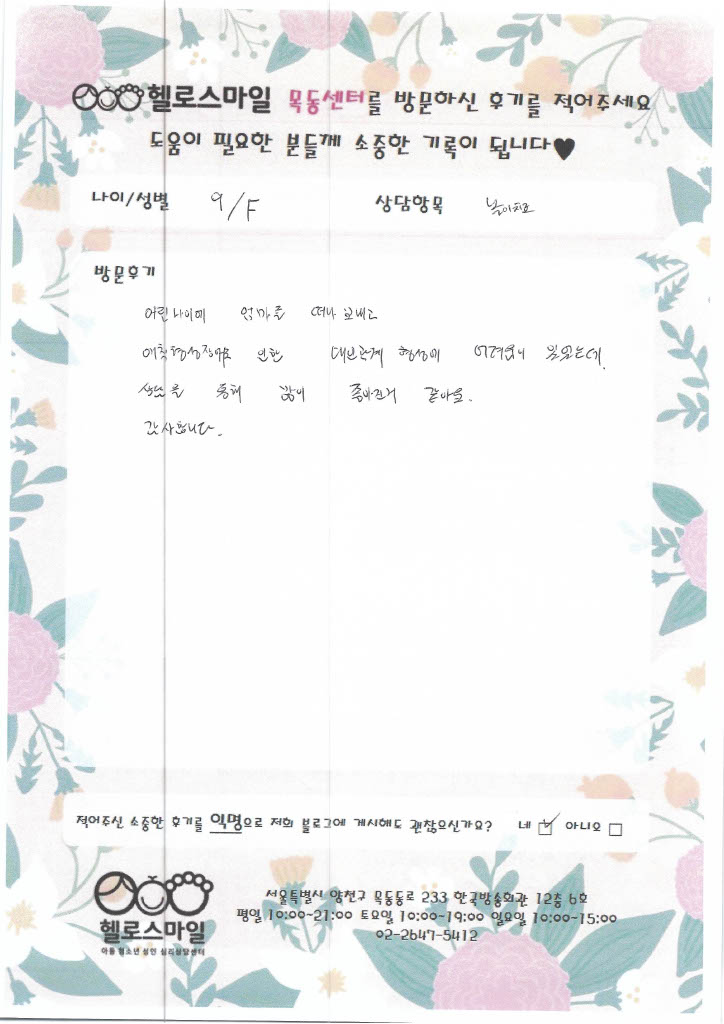 헬로스마일 목동센터를 방문하신 후기를 적어주세요
도움이 필요한 분들께 소중한 기록이 됩니다♥
나이/성별 9/F 상담항목 놀이치료
방문후기
어린나이에 엄마를 떠나 보내고
애착형성장애로 인한 대인관계 형성에 어려움이 있었는데.
상담을 통해 많이 좋아진거 같아요.
감사합니다.
적어주신 소중한 후기를 익명으로 저희 블로그에 게시해도 괜찮으신가요? 네 ☑ 아니오 □
헬로스마일
아동 청소년 성인 심리상담센터
서울특별시 양천구 목동동로 233 한국방송회관 12층 6호
평일 10:00~21:00 토요일 10:00~19:00 일요일 10:00~15:00
02-2647-5412